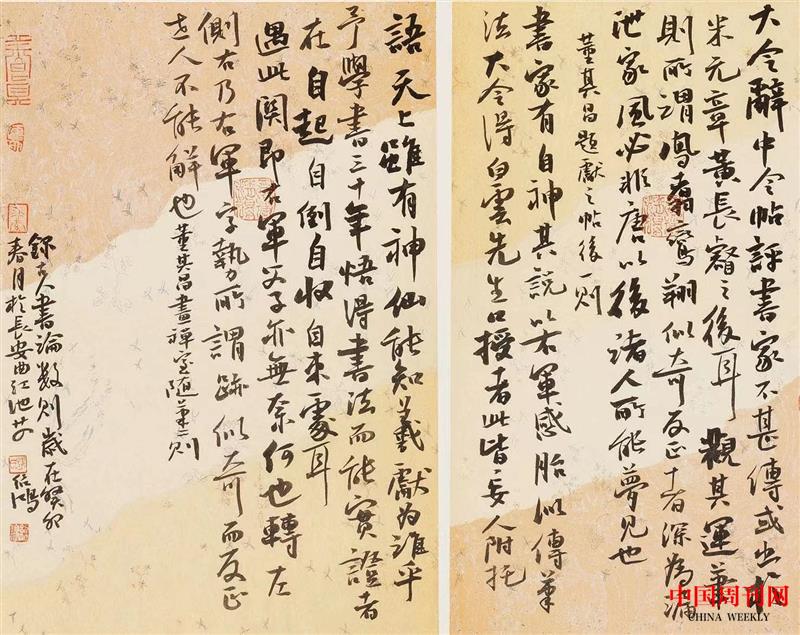 大令辭中令帖評書家不甚傳或出於
米元章黃長睿之後耳觀其運筆
則所謂鳳翥鸞翔似奇反正者深為漏
泄家風必非唐以後諸人所能夢見也
董其昌題獻之帖後一則
書家有自神其說以右軍感胎仙傳筆
法大令得白雲先生口授者此皆妄人附托
語天上雖有神仙能知羲獻為誰乎
予學書三十年悟得書法而能實證者
在自起自倒自收自束處耳
過此關即右軍父子亦無奈何也轉左
側右乃右軍字勢所謂跡似奇而反正
世人不能解也 董其昌畫禪室隨筆二則
錄古人書論數則歲在癸卯
春月於長安曲江池
中国周刊网
CHINA WEEKLY